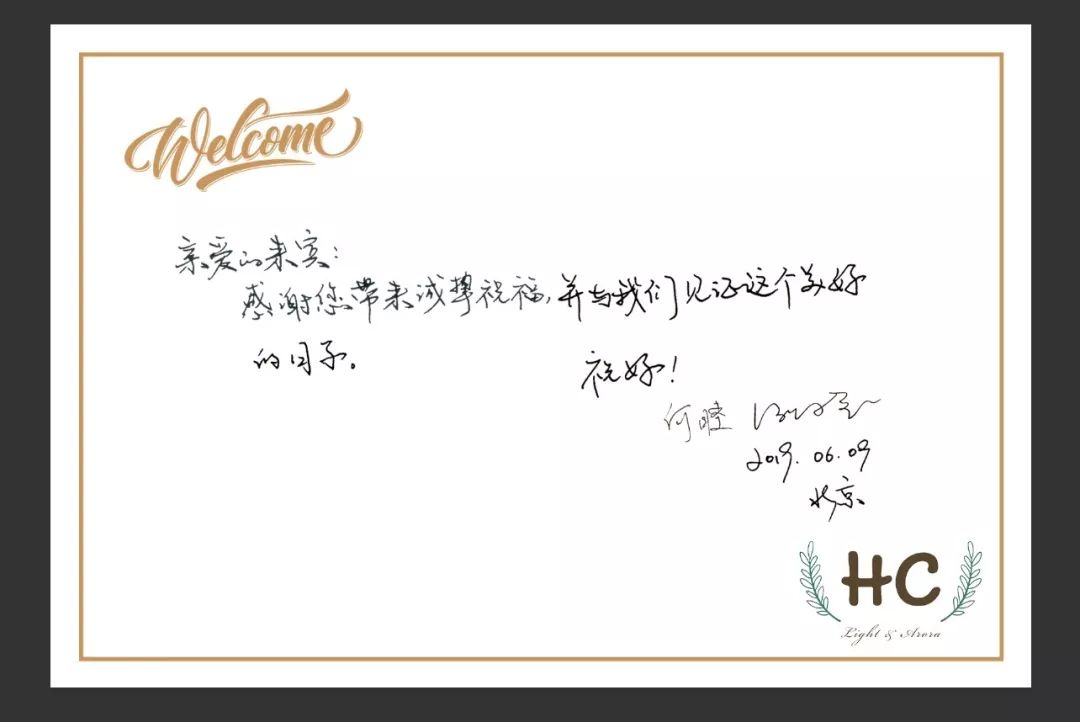 Welcome
亲爱的来宾:
感谢您带来诚挚祝福,并与我们见证这个美好
的日子。
祝好!
何
2019.06.09
北京
HC
Light & Arora